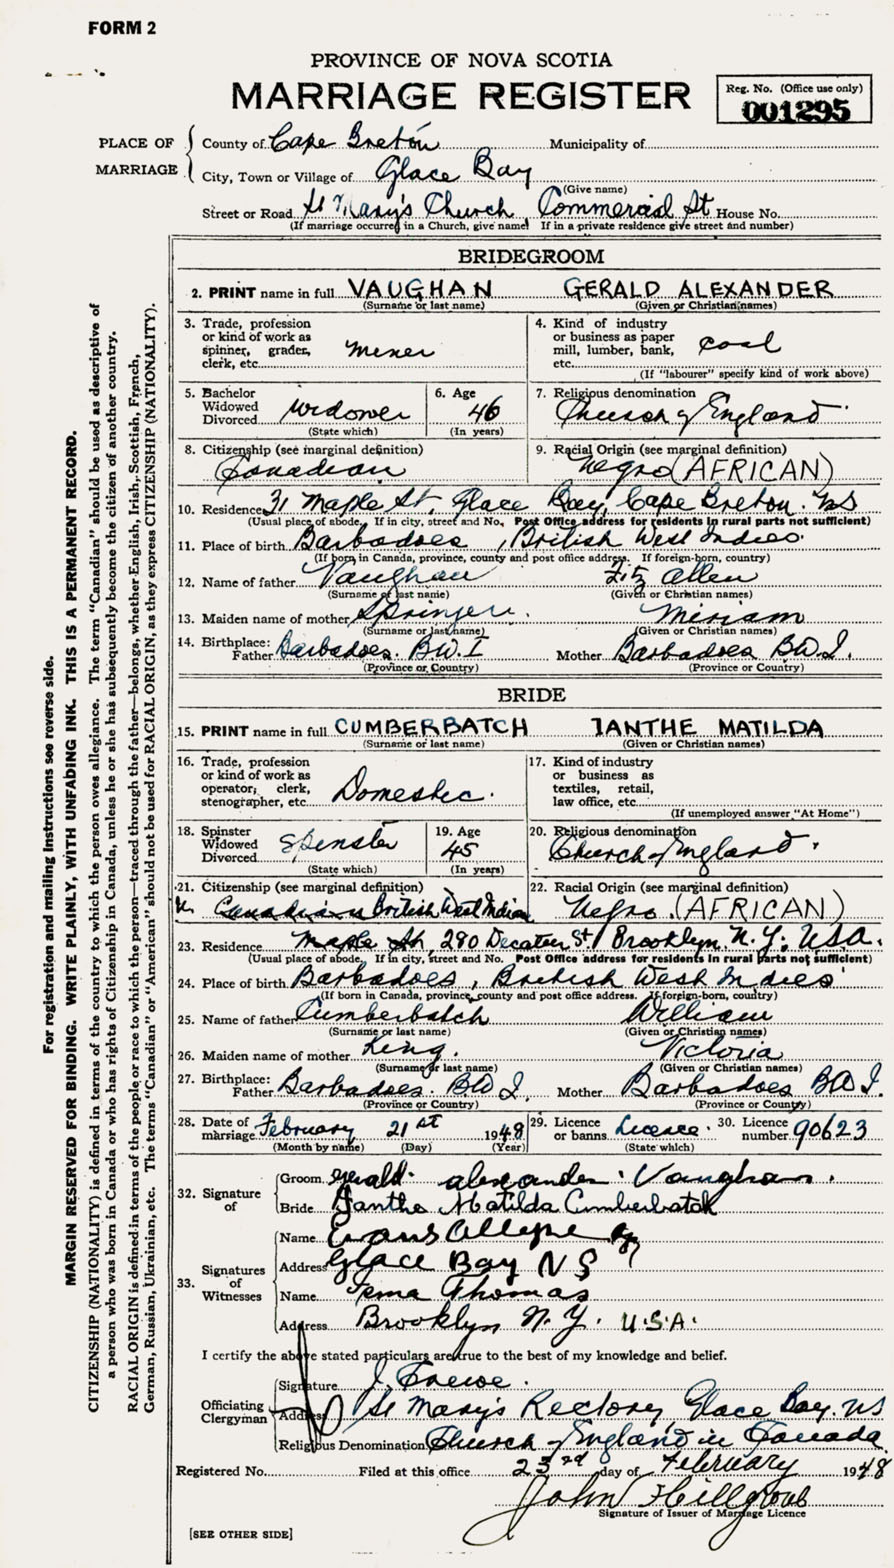 FORM 2
PROVINCE OF NOVA SCOTIA
MARRIAGE REGISTER
Reg. No. (Office use only)
001295
PLACE OF MARRIAGE
County of Cape Breton Municipality of
City, Town or Village of Glace Bay
(Give name)
Street or Road St Mary's Church Commercial St House No.
(If marriage occurred in a Church, give name) If in a private residence give street and number)
BRIDEGROOM
2. PRINT name in full VAUGHAN GERALD ALEXANDER
(Surname or last name) (Given or Christian names)
3. Trade, profession or kind of work as spinner, grader, clerk, etc. Miner
4. Kind of industry or business as paper mill, lumber, bank, etc. coal
(If "labourer" specify kind of work above)
5. Bachelor Widowed Divorced Widower
(State which)
6. Age 46
(In years)
7. Religious denomination
Church of England
8. Citizenship (see marginal definition)
Canadian
9. Racial Origin (see marginal definition)
Negro (AFRICAN)
10. Residence 31 Maple St, Glace Bay, Cape Breton. NS
(Usual place of abode. If in city, street and No. Post Office address for residents in rural parts not sufficient)
11. Place of birth Barbadoes, British West Indies.
(If born in Canada, province, county and post office address. If foreign-born, country)
12. Name of father Vaughan Fitz Allen
(Surname or last name) (Given or Christian names)
13. Maiden name of mother Springer. Miriam
(Surname or last name) (Given or Christian names)
14. Birthplace: Father Barbadoes. B.W.I Mother Barbadoes B.W.I.
(Province or Country) (Province or Country)
BRIDE
15. PRINT name in full CUMBERBATCH IANTHE MATILDA
(Surname or last name) (Given or Christian names)
16. Trade, profession or kind of work as operator, clerk, stenographer, etc. Domestic.
17. Kind of industry or business as textiles, retail, law office, etc.
(If unemployed answer "At Home")
18. Spinster Widowed Divorced Spinster
(State which)
19. Age 45
(In years)
20. Religious denomination
Church of England.
21. Citizenship (see marginal definition)
Canadian British West Indian
22. Racial Origin (see marginal definition)
Negro. (AFRICAN)
23. Residence Maple St, 280 Decatur St / Brooklyn. N.Y. U.S.A.
(Usual place of abode. If in city, street and No. Post Office address for residents in rural parts not sufficient)
24. Place of birth Barbadoes, British West Indies
(If born in Canada, province, county and post office address. If foreign-born, country)
25. Name of father Cumberbatch William
(Surname or last name) (Given or Christian names)
26. Maiden name of mother King. Victoria
(Surname or last name) (Given or Christian names)
27. Birthplace: Father Barbadoes. B.W.I. Mother Barbadoes B.W.I.
(Province or Country) (Province or Country)
28. Date of marriage February 21st 1948
(Month by name) (Day) (Year)
29. Licence or banns Licence.
(State which)
30. Licence number 90623
32. Signature of
Groom Gerald alexander Vaughan.
Bride Ianthe Matilda Cumberbatch
33. Signatures of Witnesses
Name Evans Alleyne
Address Glace Bay NS
Name Thomas
Address Brooklyn N.Y. U.S.A.
I certify the above stated particulars are true to the best of my knowledge and belief.
Officiating Clergyman
Signature J.
Address St Mary's Rectory, Glace Bay. NS
Religious Denomination Church of England in Canada.
Registered No. Filed at this office 23rd day of February 1948
John
Signature of Issuer of Marriage Licence
[SEE OTHER SIDE]
For registration and mailing instructions see reverse side.
MARGIN RESERVED FOR BINDING. WRITE PLAINLY, WITH UNFADING INK. THIS IS A PERMANENT RECORD.
CITIZENSHIP (NATIONALITY) is defined in terms of the country to which the person owes allegiance. The term "Canadian" should be used as descriptive of
a person who was born in Canada or who has rights of Citizenship in Canada, unless he or she has subsequently become the citizen of another country.
RACIAL ORIGIN is defined in terms of the people or race to which the person—traced through the father—belongs, whether English, Irish, Scottish, French,
German, Russian, Ukrainian, etc. The terms "Canadian" or "American" should not be used for RACIAL ORIGIN, as they express CITIZENSHIP (NATIONALITY).